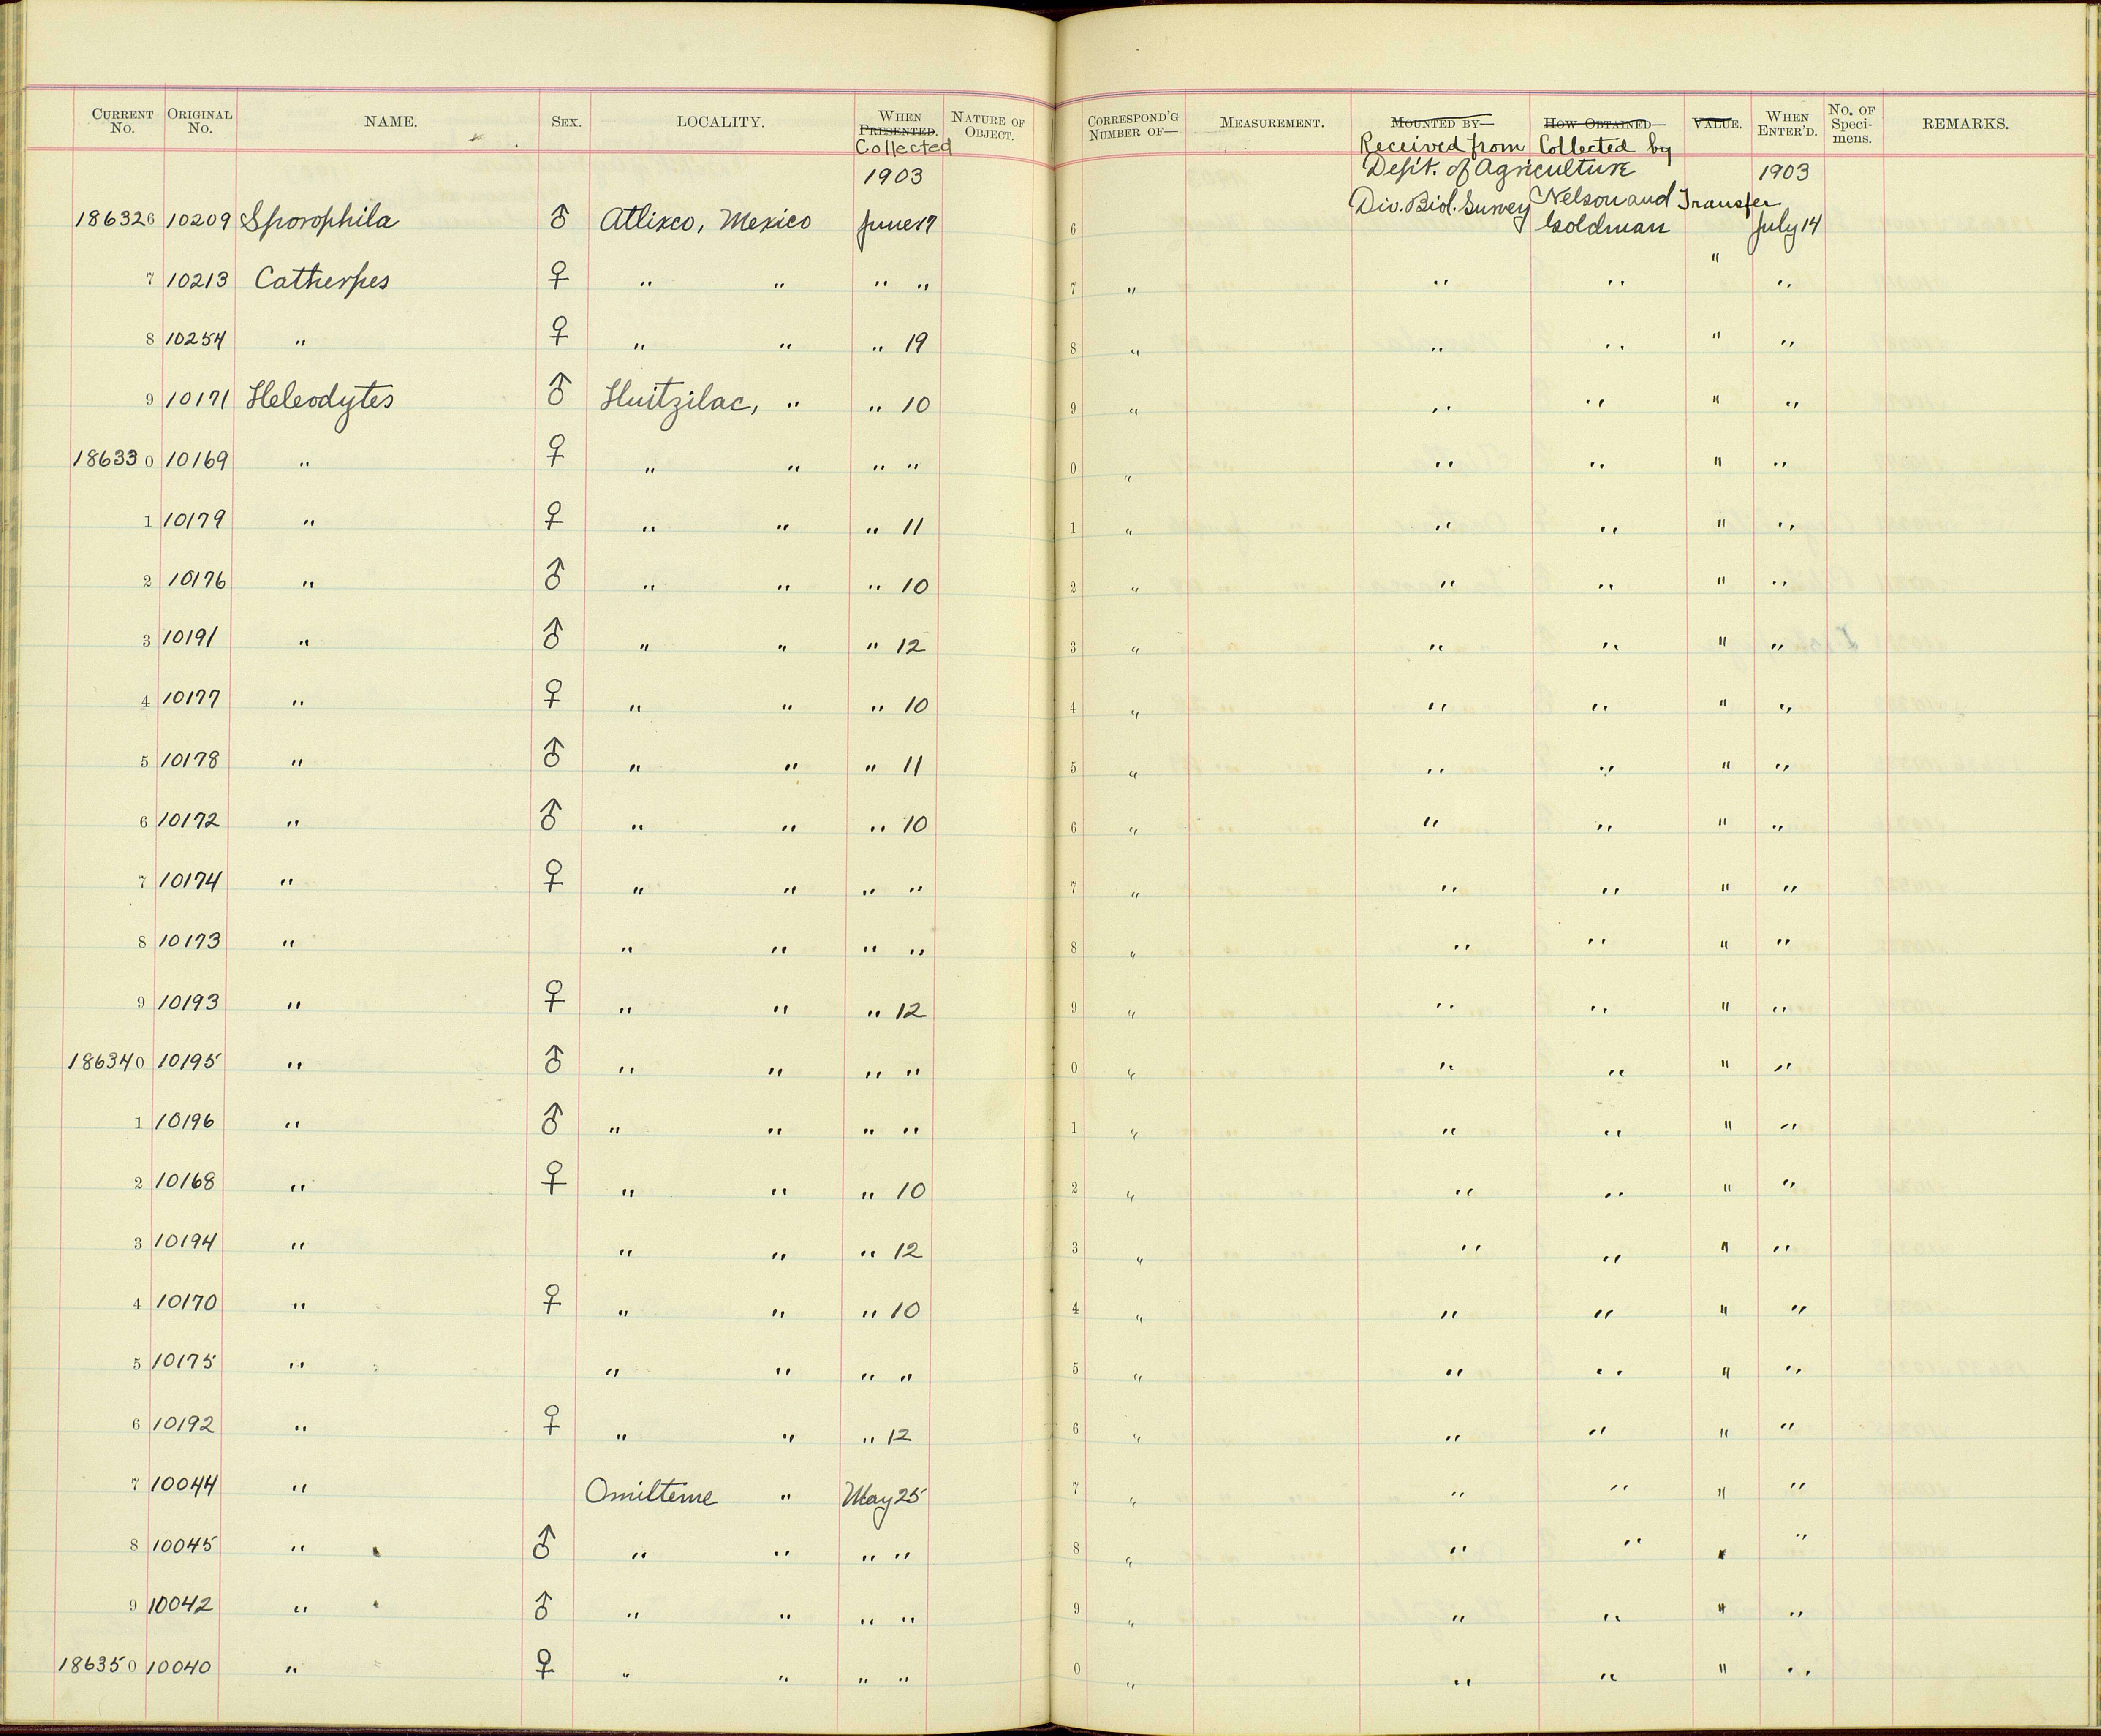 CURRENT No. ORIGINAL No. NAME. SEX. LOCALITY. WHEN PRESENTED. Collected NATURE OF OBJECT. CORRESPOND'G NUMBER OF— MEASUREMENT. MOUNTED BY— Received from HOW OBTAINED— Collected by VALUE. WHEN ENTER'D. No. OF Speci-mens. REMARKS.
1903 Dept. of Agriculture 1903
186326 10209 Sporophila ♂ Atlixco, Mexico June 17 6 Div. Biol. Survey Nelson and Goldman Transfer July 14
7 10213 Catherpes ♀ " " " " 7 " " " " "
8 10254 " ♀ " " " 19 8 " " " " "
9 10171 Heleodytes ♂ Huitzilac, " " 10 9 " " " " "
186330 10169 " ♀ " " " " 0 " " " " "
1 10179 " ♀ " " " 11 1 " " " " "
2 10176 " ♂ " " " 10 2 " " " " "
3 10191 " ♂ " " " 12 3 " " " " "
4 10177 " ♀ " " " 10 4 " " " " "
5 10178 " ♂ " " " 11 5 " " " " "
6 10172 " ♂ " " " 10 6 " " " " "
7 10174 " ♀ " " " " 7 " " " " "
8 10173 " " " " " 8 " " " " "
9 10193 " ♀ " " " 12 9 " " " " "
186340 10195 " ♂ " " " " 0 " " " " "
1 10196 " ♂ " " " " 1 " " " " "
2 10168 " ♀ " " " 10 2 " " " " "
3 10194 " " " " 12 3 " " " " "
4 10170 " ♀ " " " 10 4 " " " " "
5 10175 " " " " " 5 " " " " "
6 10192 " ♀ " " " 12 6 " " " " "
7 10044 " Omilteme " May 25 7 " " " " "
8 10045 " ♂ " " " " 8 " " " " "
9 10042 " ♂ " " " " 9 " " " " "
186350 10040 " ♀ " " " " 0 " " " " "